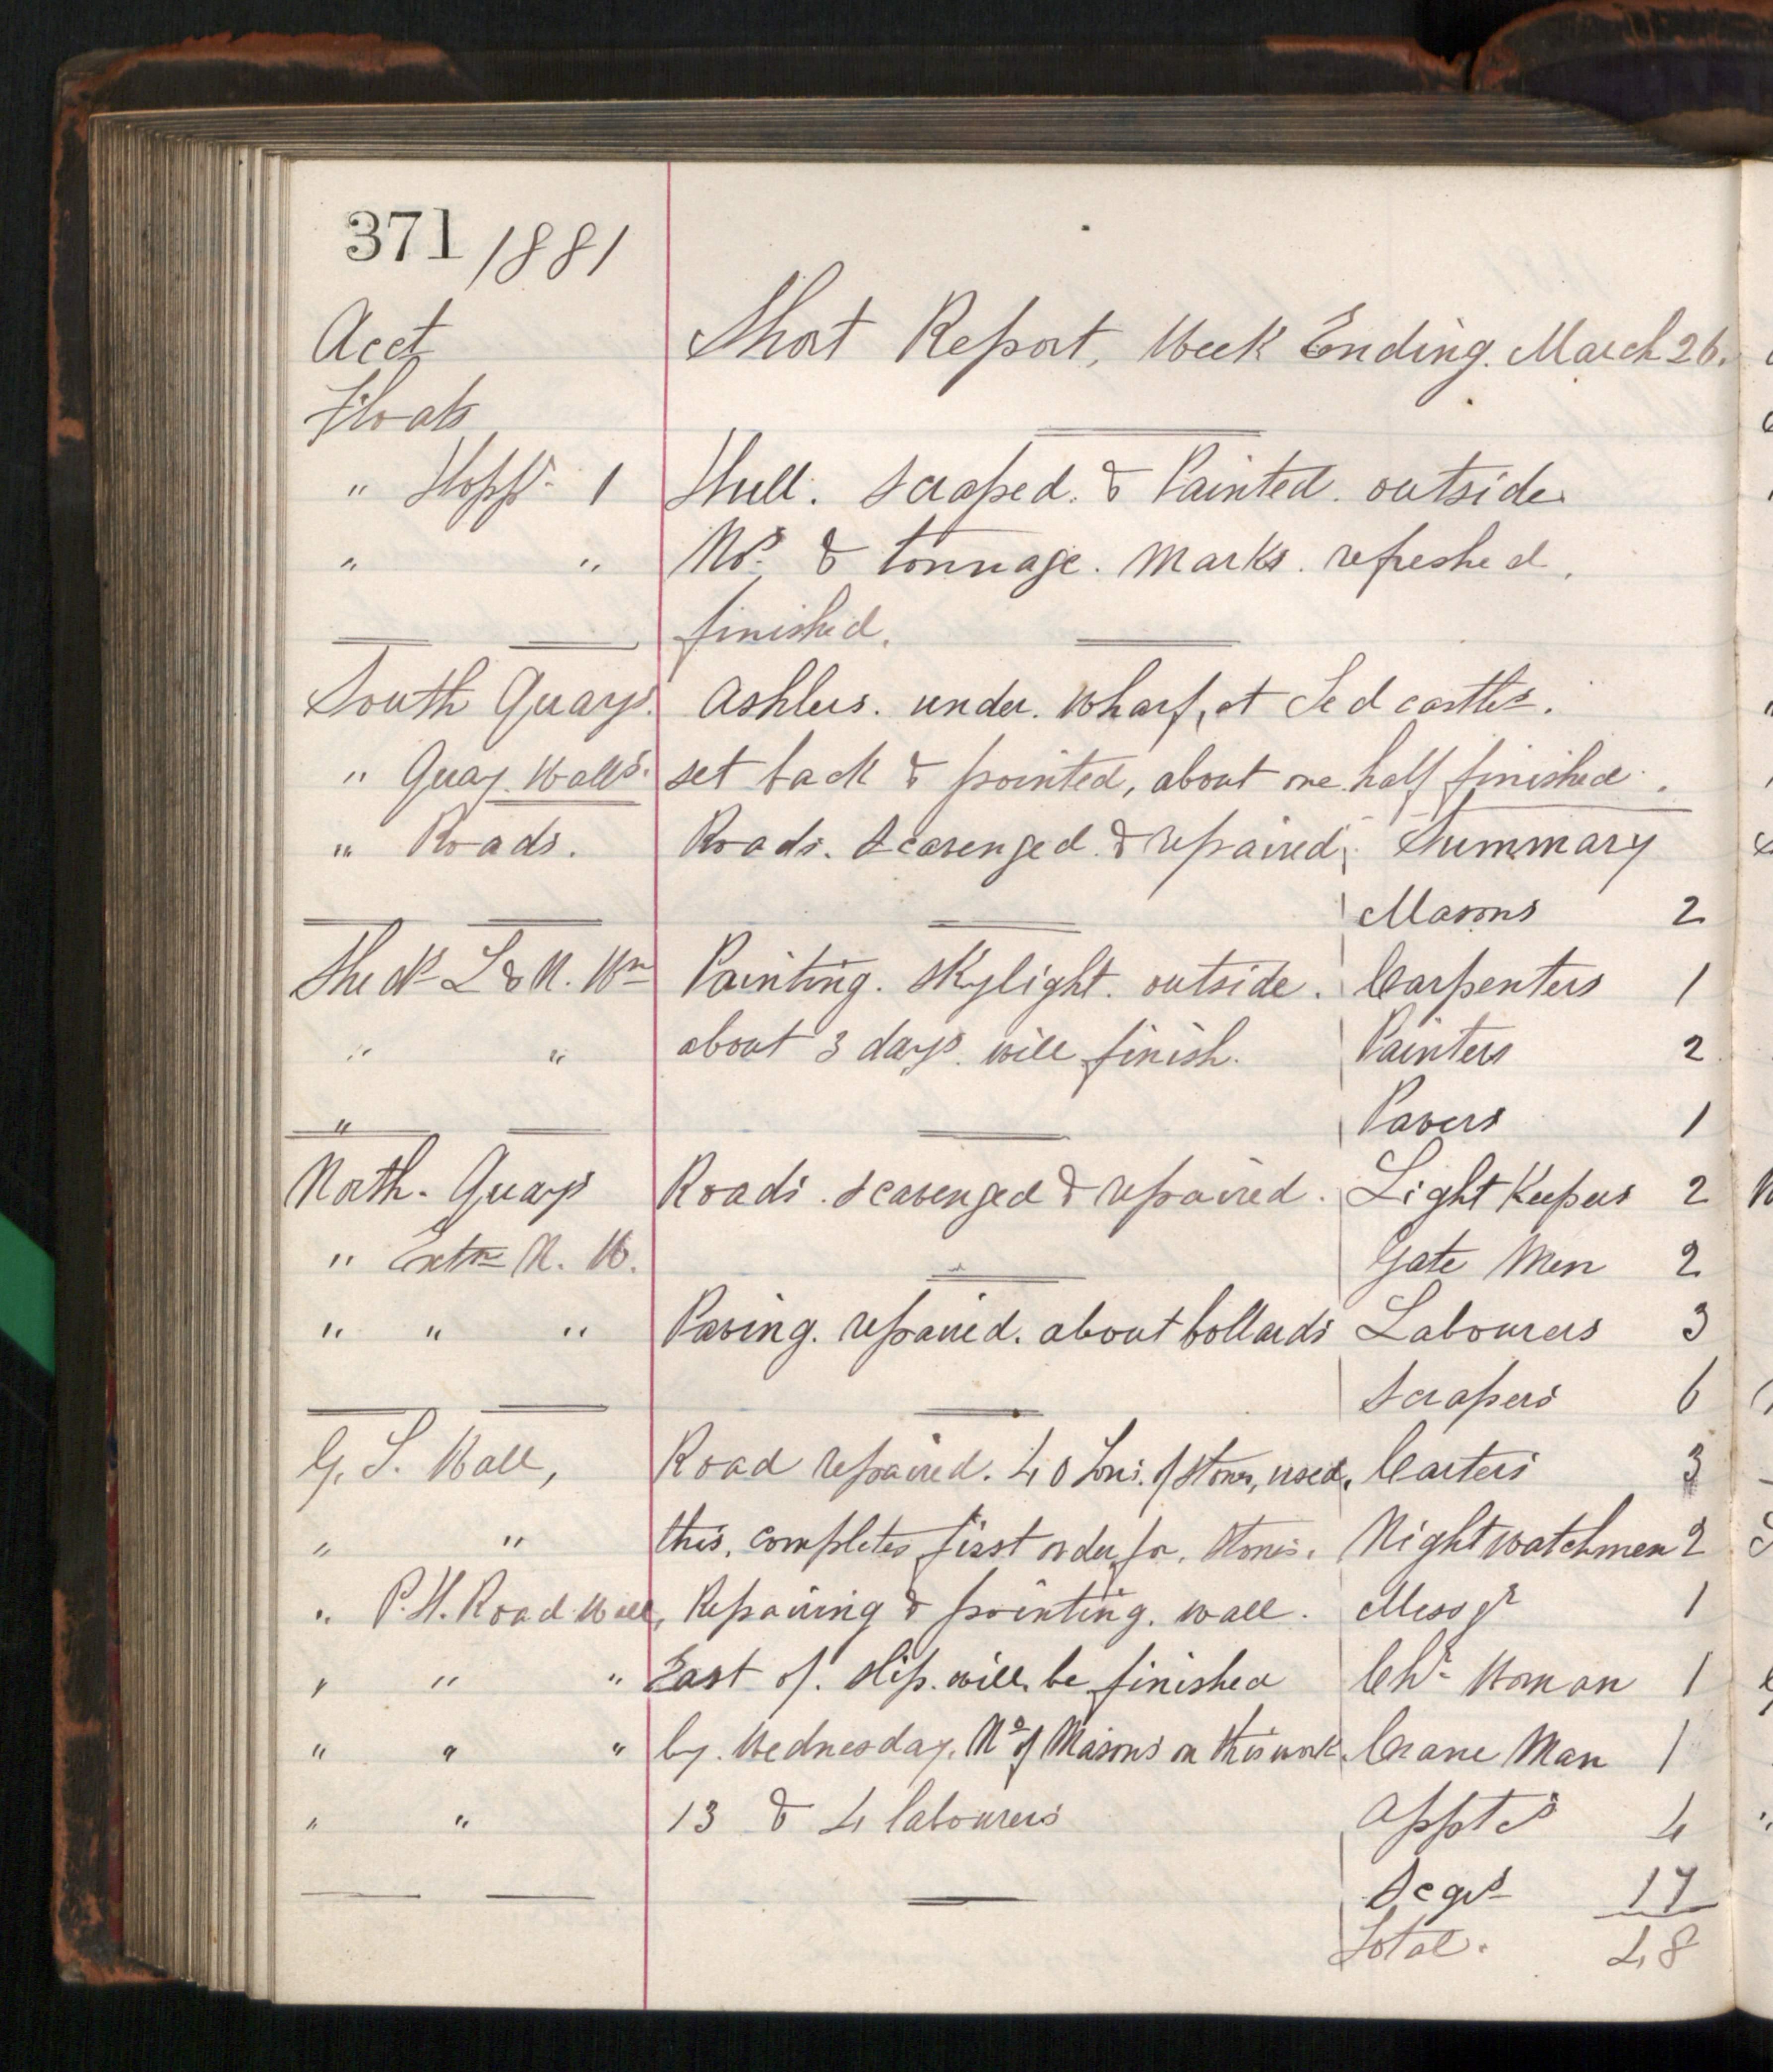 371 1881
Acct Short Report, Week Ending. March 26.
Floats
" Hoppr 1 Hull. Scraped. & Painted. outside.
" " Nos. & tonnage. Marks. refreshed.
finished.
South Quays. Ashlers. under. Wharf, at Tedcastles.
" Quay. Walls. set back & pointed, about one half finished.
" Roads. Roads. Scavenged. & repaired. Summary
Masons 2
Sheds L & N. Wn Painting. Skylight. outside. Carpenters 1
" " about 3 days. will finish. Painters 2
" Pavers 1
North. Quays Roads. scavenged & repaired. Light Keepers 2
" Extn N. W. Gate Men 2
" " " Paving. repaired. about bollards Labourers 3
Scrapers 6
G. S. Wall, Road repaired. 40 Tons. of stones, used. Carters 3
" " this. completes first order for. stones. Night watchmen 2
" P. H. Road Wall, Repairing & pointing. wall. Messgr 1
" " " East of. slip. will be finished Chr Woman 1
" " " by. Wednesday. No of Masons on this work. Crane Man 1
" " 13 & 4 labourers Apptes 4
Scgrs 17
Total. 48